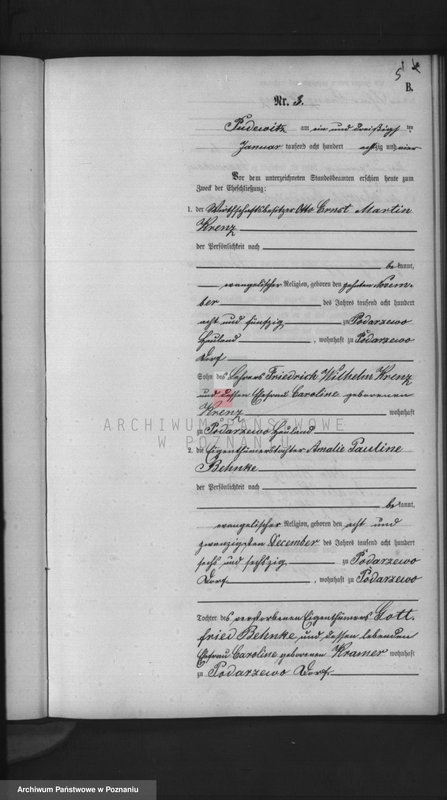 B.
Nr. 3.
Pudewitz am ein und dreißigsten
Januar tausend acht hundert achtzig und vier
Vor dem unterzeichneten Standesbeamten erschien heute zum
Zweck der Eheschließung:
1. der Wirthschaftsbesitzer Otto Ernst Martin
Krenz
der Persönlichkeit nach
bekannt,
evangelischer Religion, geboren den zehnten Novem-
ber des Jahres tausend acht hundert
acht und fünfzig, zu Podarzewo
Hauland, wohnhaft zu Podarzewo
Dorf
Sohn des Lehrers Friedrich Wilhelm Krenz
und dessen Ehefrau Caroline geborenen
Krenz wohnhaft
zu Podarzewo Hauland
ARCHIWUM PAŃSTWOWE
W POZNANIU
2. die Eigenthümertochter Amalie Pauline
Behnke
der Persönlichkeit nach
bekannt,
evangelischer Religion, geboren den acht und
zwanzigsten December des Jahres tausend acht hundert
sechs und sechszig, zu Podarzewo
Dorf, wohnhaft zu Podarzewo
Tochter des verstorbenen Eigenthümers Gott-
fried Behnke und dessen lebenden
Ehefrau Caroline geborenen Kramer wohnhaft
zu Podarzewo Dorf
Archiwum Państwowe w Poznaniu